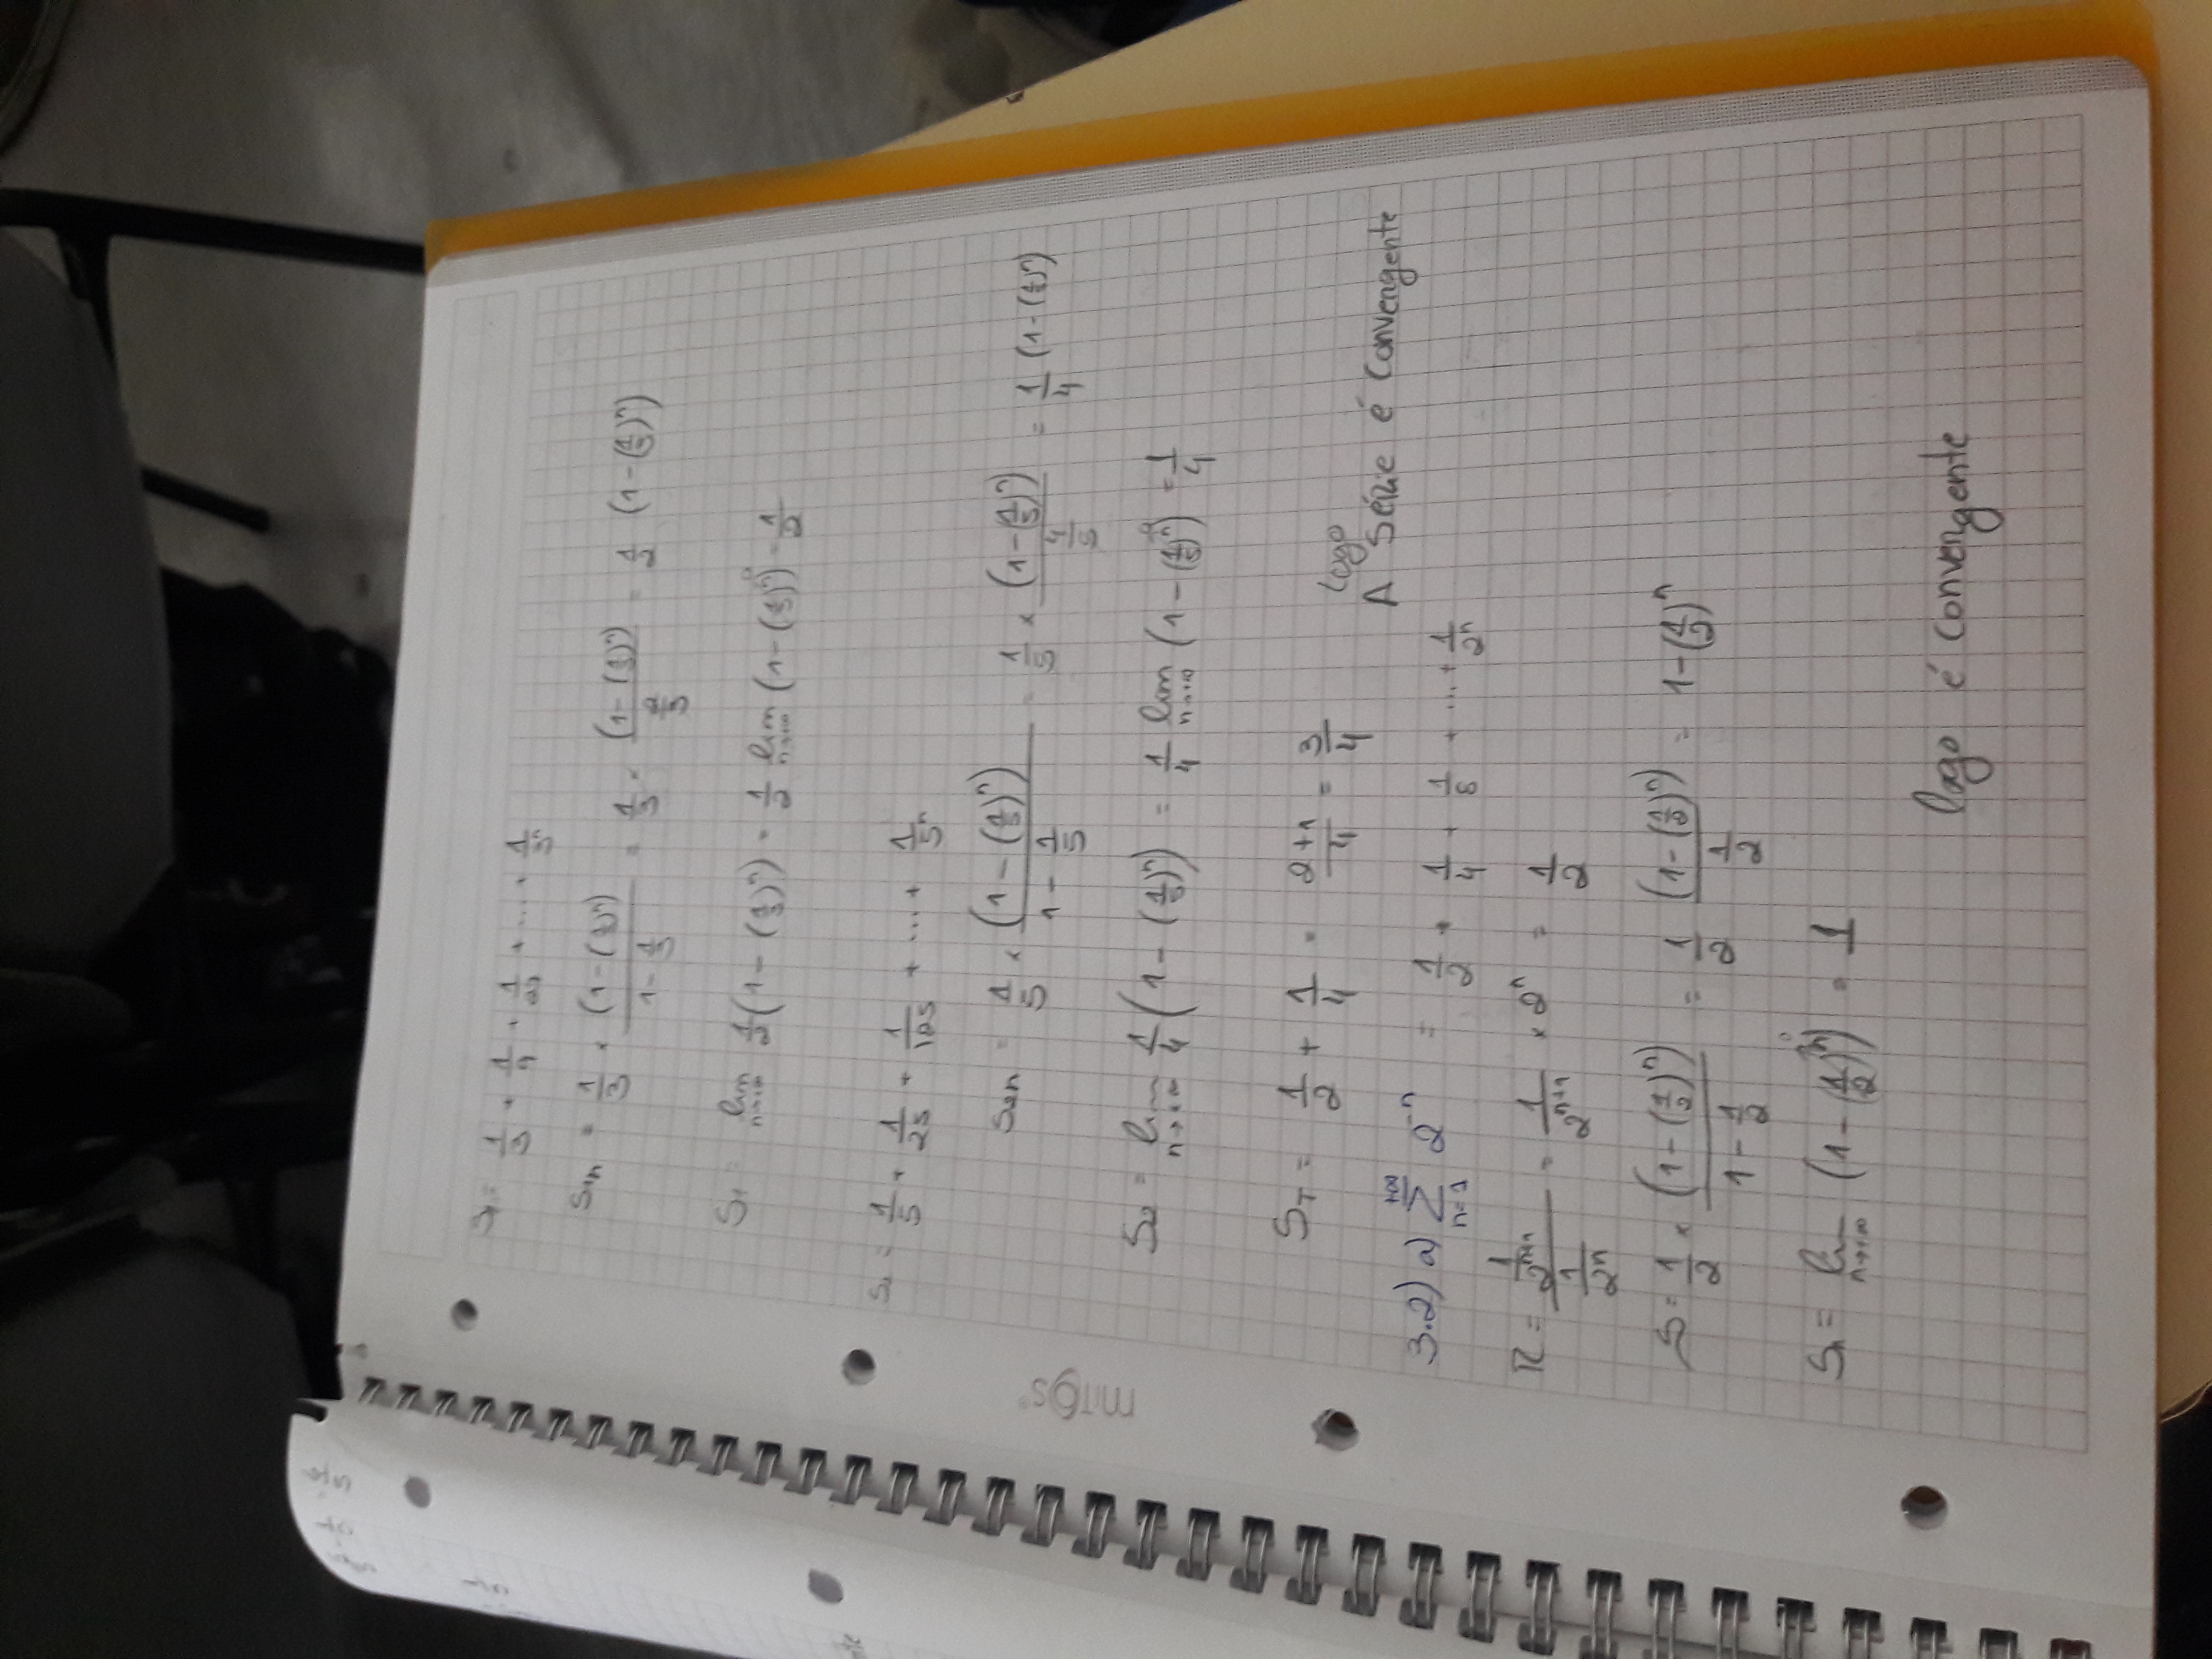 S₁ = 1/3 + 1/9 + 1/27 + ... + 1/3ⁿ
S₁n = 1/3 × (1-(1/3)ⁿ)/(1-1/3) = 1/3 × (1-(1/3)ⁿ)/(2/3) = 1/2 (1-(1/3)ⁿ)
S₁ = lim n→+∞ 1/2 (1-(1/3)ⁿ) = 1/2 lim n→+∞ (1-(1/3)ⁿ→0) = 1/2
S₂ = 1/5 + 1/25 + 1/125 + ... + 1/5ⁿ
S₂n = 1/5 × (1-(1/5)ⁿ)/(1-1/5) = 1/5 × (1-(1/5)ⁿ)/(4/5) = 1/4 (1-(1/5)ⁿ)
mitos
S₂ = lim n→+∞ 1/4 (1-(1/5)ⁿ) = 1/4 lim n→+∞ (1-(1/5)ⁿ→0) = 1/4
S_T = 1/2 + 1/4 = (2+1)/4 = 3/4
logo
A Série é convergente
3.2) a) Σ n=1 +∞ 2⁻ⁿ = 1/2 + 1/4 + 1/8 + ... + 1/2ⁿ
R = (1/2ⁿ⁺¹)/(1/2ⁿ) = 1/2ⁿ⁺¹ × 2ⁿ = 1/2
S = 1/2 × (1-(1/2)ⁿ)/(1-1/2) = 1/2 (1-(1/2)ⁿ)/(1/2) = 1-(1/2)ⁿ
Sn = lim n→+∞ (1-(1/2)ⁿ→0) = 1
logo é convergente